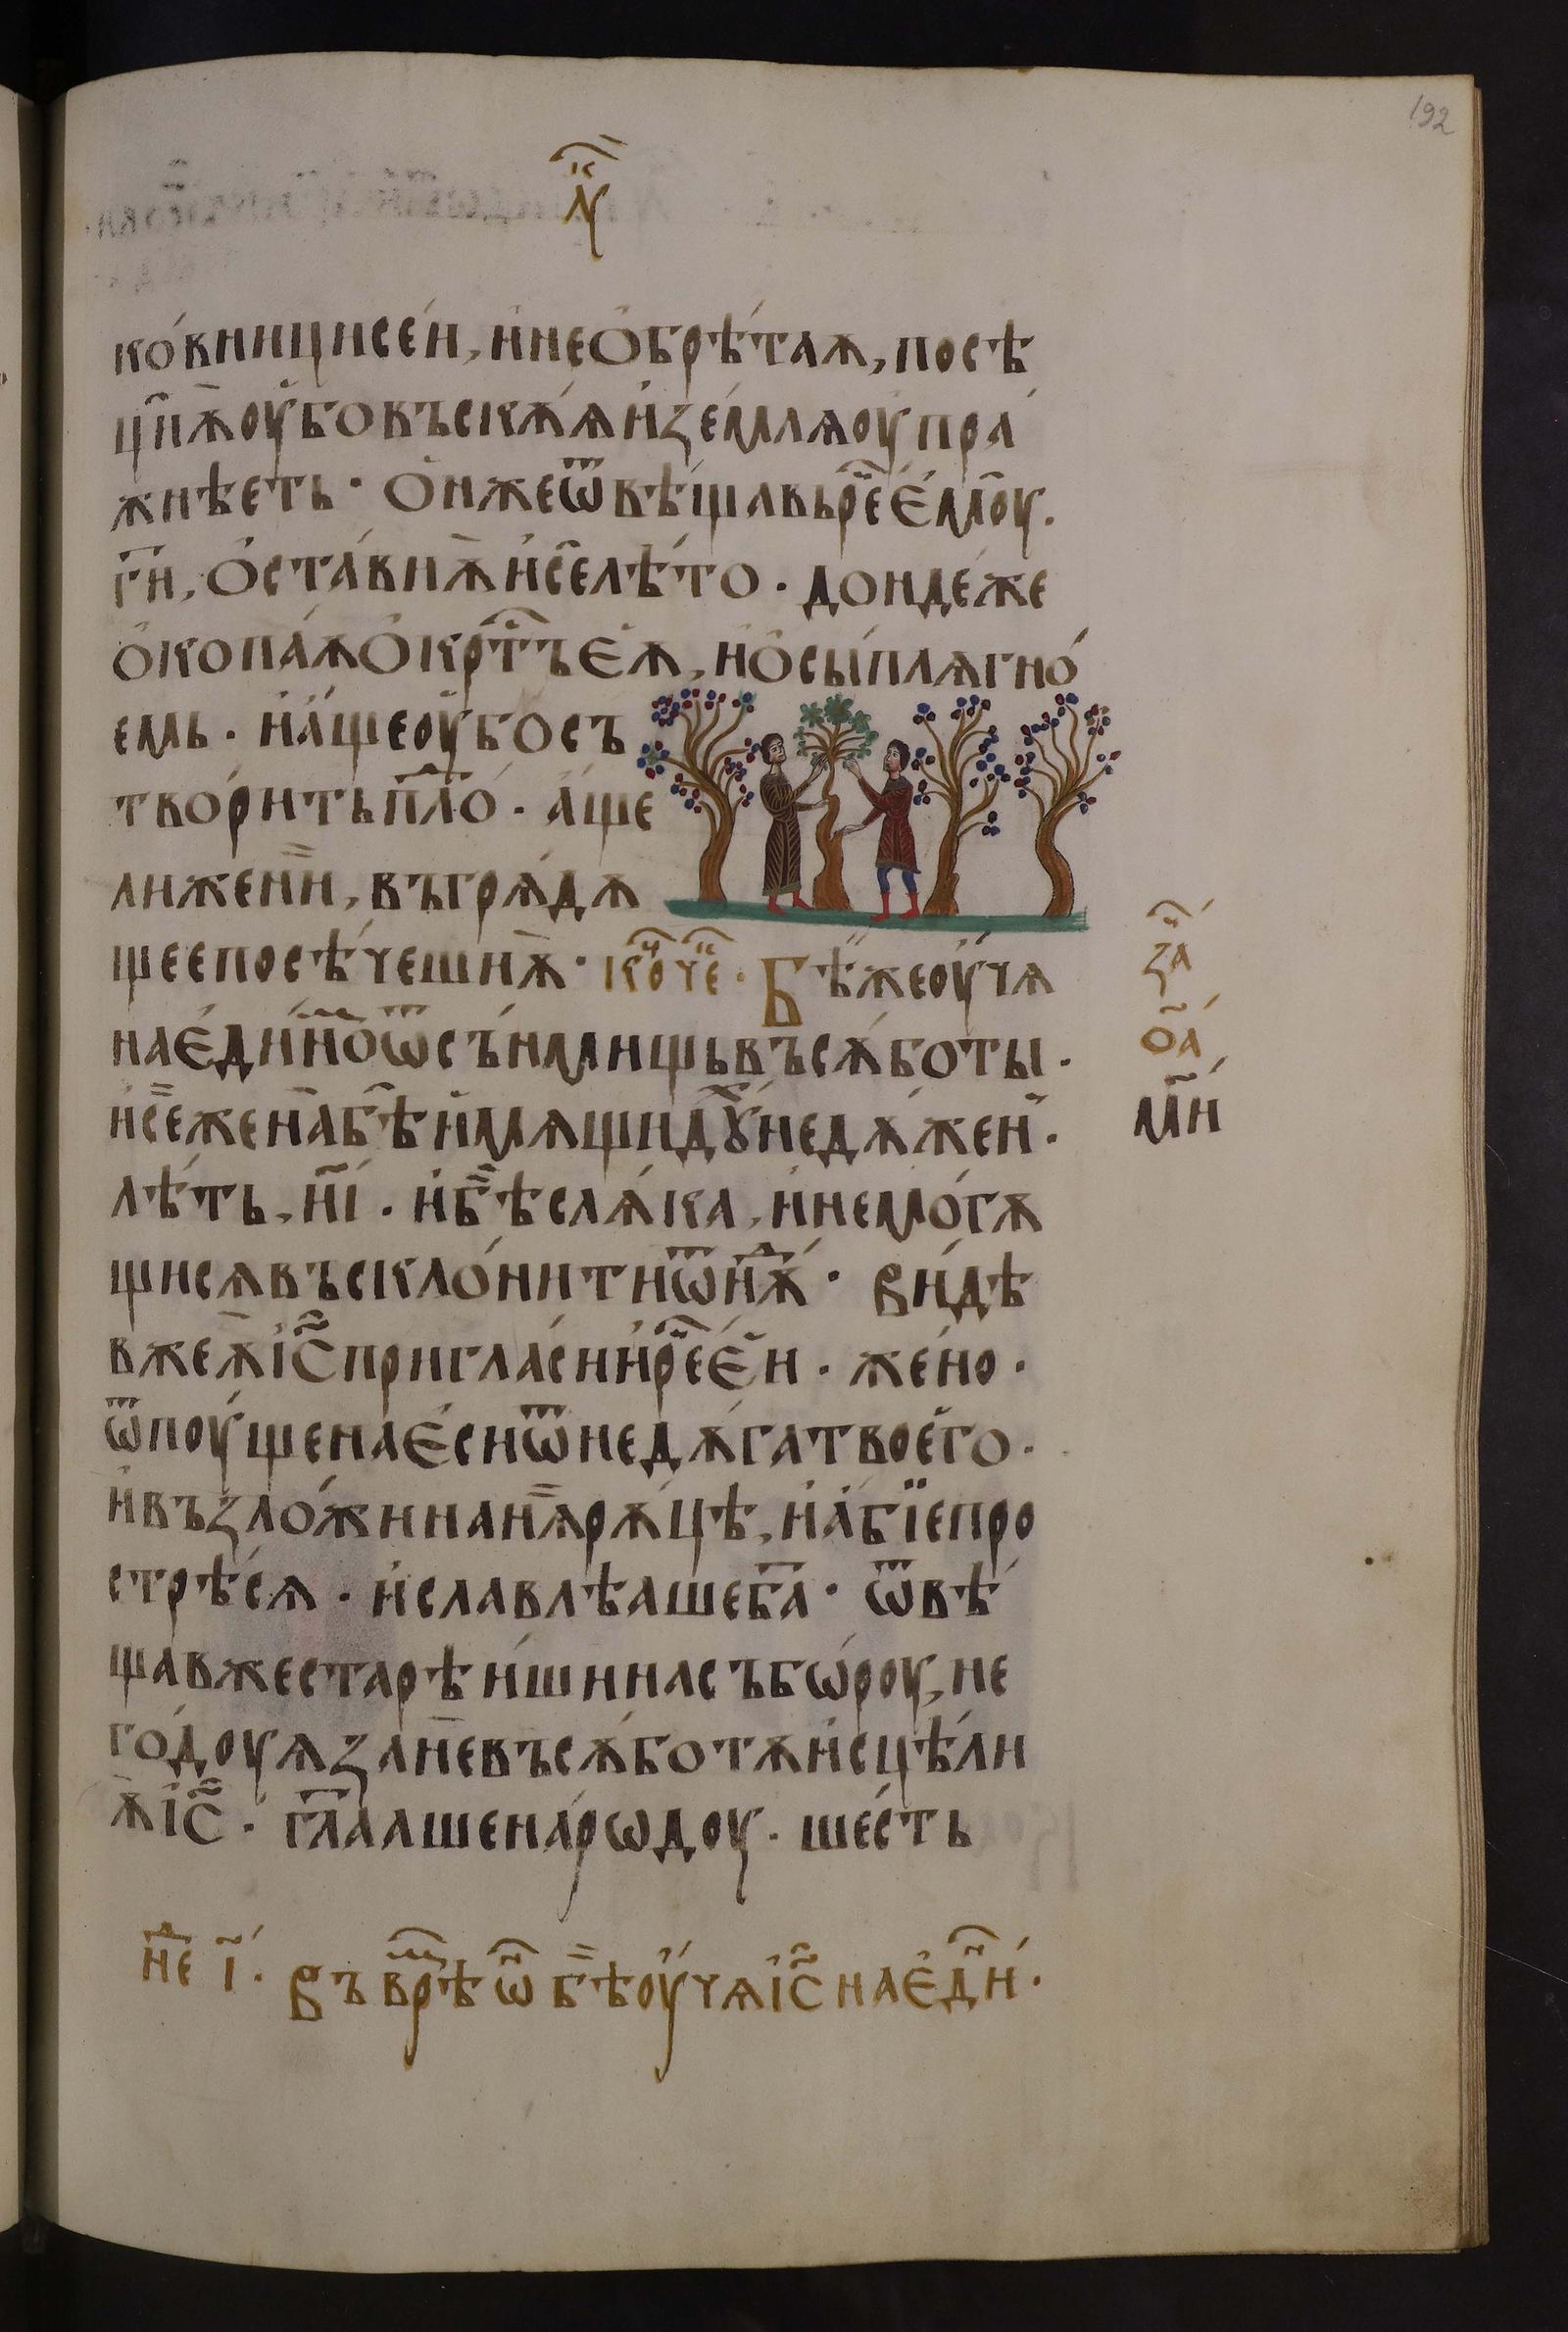 192
лꙋ
ко́вници се́и, и҆ не ѡ҆брѣ́таѫ, посѣ
ци ѫ҆ оу҆бо въскѫ́ѫ и҆ ꙁе́млѧ оу҆пра́
жнѣетъ · Ѻ҆нже ѿвѣ́щавь рⷱ҇е є҆моу ·
г҃и, ѻ҆ста́ви ѫ҆ и҆ се лѣ́то · до́нде́же
ѻ҆копа́ѫ ѻ҆крⷭ҇тъ є҆ѫ, и҆ ѻ҆сы́плѧ гно́
емь · и҆ а҆́ще оу҆бо съ
тво́рить плⷪ҇ · а҆́ще
ли же ни, въ грѧ́дѫ
щее посѣ́чеши ѫ҆ · коⷰ҇ чеⷭ҇ · Бѣ́ же оу҆чѧ
на є҆ди́ноⷨ ѿ съни́мищь въ сѫ́боты ·
и҆ се жена бѣ и҆мѧщи дꙋⷯ не дѫ́жен ·
лѣ́ть, и҃і · и҆ бѣ слѫ́ка, и҆ не мо́гѫ
щи сѧ въскло́нити ѿнⷫ҇ѫд · Ви́дѣ
в же ѫ҆ і҆с҃ пригласи и҆ рⷱ҇е є҆и · же́но ·
ѿпоу́щена є҆си ѿ недѫ́га твоего ·
и҆ въꙁло́жи на нѫ рѫ́цѣ, и҆ а҆бїе про
стрѣ́ сѧ · и҆ славлѣаше б҃а · ѿвѣ́
щав же старѣи́шина съборꙋ, не
го́доуѧ ꙁане въ сѫ́ботѫ и҆сцѣ́ли
ѫ҆ і҆с҃ · гл҃ааше наро́доу · ше́сть
ꙁаⷱ҇
о҃а
мⷩ҇и
неⷣ і҃ · Въ врⷨ҇ѣ ѡⷩ҇ бѣ оу҆чѧ і҆с҃ на є҆дⷩ҇и ·